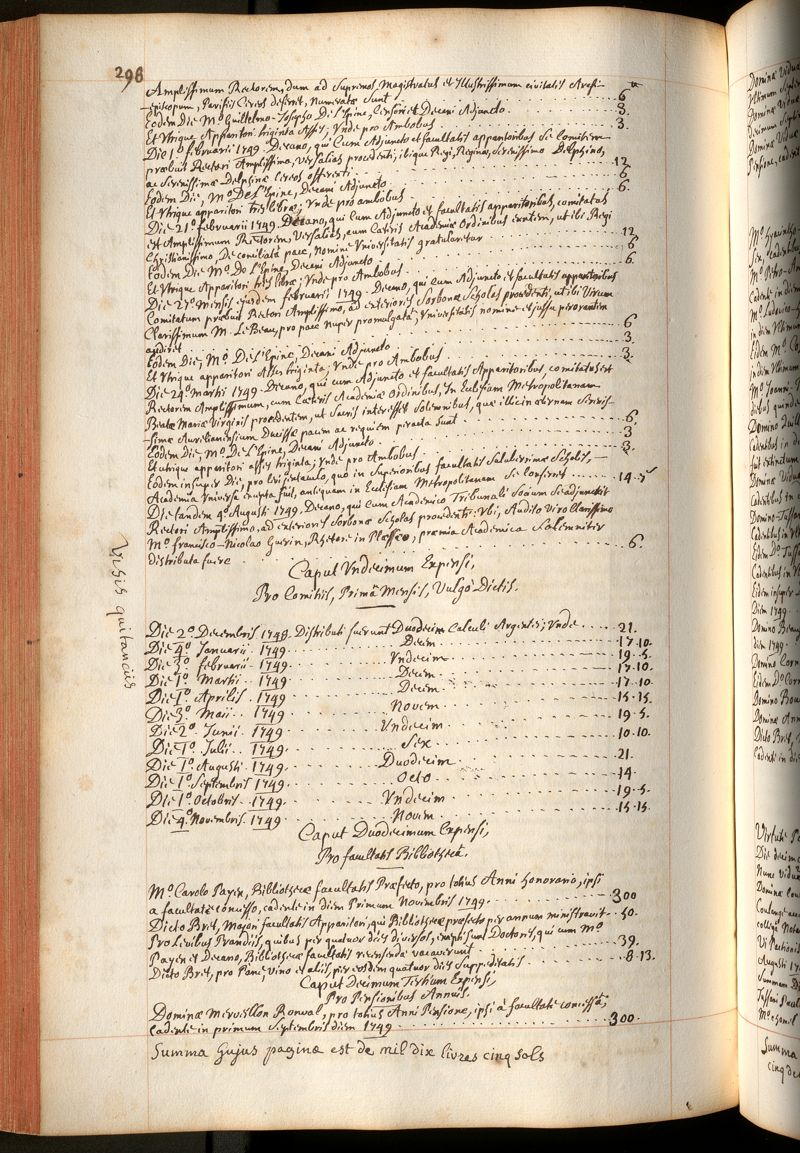 298
Amplissimum Rectorem, dum ad Supremos Magistratus et Illustrissimum civitatis Archi-
-episcopum, Parisiis Cereos deferret, Numerata Sunt . . . 6
Eodem Die M.º Guillelmo-Josepho De L'Epine, Censori et Decani Adjuncto . . . 3.
Et Utrique Apparitori triginta Asses; Unde pro Ambobus . . . 3.
Die 1.º februarii 1749. Decano, qui Cum Adjuncto et facultatis apparitoribus Se Comitem
præbuit Rectori Amplissimo, Versalias procedenti, ibique Regi, Reginæ, Serenissimo Delphino,
ac Serenissimæ Delphinæ Cereos offerenti . . . 12
Eodem Die, M.º De L'Epine, Decani Adjuncto . . . 6
Et Utrique apparitori tres libræ; Unde pro ambobus . . . 6.
Die 21.º februarii 1749. Decano, qui Cum Adjuncto et facultatis apparitoribus, comitatus
est Amplissimum Rectorem, Versalias, cum Cæteris Academiæ Ordinibus euntem, ut ibi Regi
Christianissimo, De Conciliatâ pace, Nomine Universitatis gratularetur . . . 12
Eodem Die M.º De L'Epine, Decani Adjuncto . . . 6
Et Utrique Apparitori tres libræ; Unde pro Ambobus . . . 6.
Die 27.º Mensis ejusdem februarii 1749. Decano, qui Cum Adjuncto et facultatis apparitoribus
Comitatum præbuit Rectori Amplissimo, ad exteriores Sorbonæ Scholas procedenti, ut ibi Virum
Clarissimum M. Le Beau, pro pace nuper promulgatâ, Universitatis nomine et jussu perorantem
audiret . . . 6
Eodem Die, M.º De L'Epine, Decani Adjuncto . . . 3
Et Utrique apparitori Asses triginta; Unde pro Ambobus . . . 3.
Die 24.º Martii 1749. Decano, qui cum Adjuncto et facultatis Apparitoribus, comitatus est
Rectorem Amplissimum, cum Cæteris Academiæ Ordinibus, In Ecclesiam Metropolitanam
Beatæ Mariæ Virginis procedentem, ut Sacris interesset Solemnibus, quæ illic in æternam Sereniss-
-simæ Aurelianensium Ducissæ pacem ac requiem peracta sunt . . . 6.
Eodem Die M.º De L'Epine, Decani Adjuncto . . . 3
Et utrique apparitori asses triginta; Unde pro Ambobus . . . 3.
Eodem insuper Die, pro Levi jentaculo, quo in Superioribus facultatis Saluberrimæ Scholis,
Academia Universa excepta fuit, antequam in Ecclesiam Metropolitanam Se Conferret . . . 14. 5
Die tandem 4.º Augusti 1749. Decano, qui cum Academico Tribunali Socium Se adjunxit
Rectori Amplissimo, ad exteriores Sorbonæ Scholas procedenti: Ubi, Audito Viro Clarissimo
M.º francisco-Nicolao Guerin, Rhetore in Plessæo, præmia Academica Solemniter
distributa fuere . . . 6.
Visis quitanciis
Caput Undecimum Expensi,
Pro Comitiis, Primâ Mensis, Vulgò Dictis.
Die 2.º Decembris 1748. Distributi fuerunt Duodecim Calculi Argentei; Unde . . . 21.
Die 4.º Januarii . 1749 . . . Decem . . . 17. 10.
Die 3.º februarii . 1749 . . . Undecim . . . 19. 5.
Die 1.º Martii . 1749 . . . Decem . . . 17. 10.
Die 1.º Aprilis . 1749 . . . Decem . . . 17. 10
Die 3.º Maii . . 1749 . . . Novem . . . 15. 15.
Die 2.º Junii . . 1749 . . . Undecim . . . 19. 5.
Die 1.º Julii . . 1749 . . . Sex . . . 10. 10
Die 1.º Augusti . 1749 . . . Duodecim . . . 21.
Die 1.º Septembris . 1749 . . . Octo . . . 14.
Die 1.º Octobris . 1749 . . . Undecim . . . 19. 5.
Die 4.º Novembris . 1749 . . . Novem . . . 15. 15.
Caput Duodecimum Expensi,
Pro facultatis Bibliothecâ.
M.º Carolo Payen, Bibliothecæ facultatis Præfecto, pro totius Anni honorario, ipsi
a facultate concesso, cadente in diem Primum Novembris 1749 . . . 300
Dicto Bret, Majori facultatis Apparitori, qui Bibliothecæ præfecto per annum ministravit . . . 50.
Pro Levibus Prandiis, quibus per quatuor dies diversos, excepti sunt Doctores, qui cum M.º
Payen et Decano, Bibliothecæ facultatis recensendæ vacaverunt . . . 39.
Dicto Bret, pro Pane, vino et aliis, per eosdem quatuor dies Suppeditatis . . . 8. 13.
Caput Decimum Tertium Expensi,
Pro Pensionibus Annuis.
Dominæ Merveillon Bonval, pro totius Anni Pensione, ipsi à facultate concessâ,
Cadente in primum Septembris diem 1749 . . . 300.
Summa hujus paginæ est de mil dix livres cinq sols